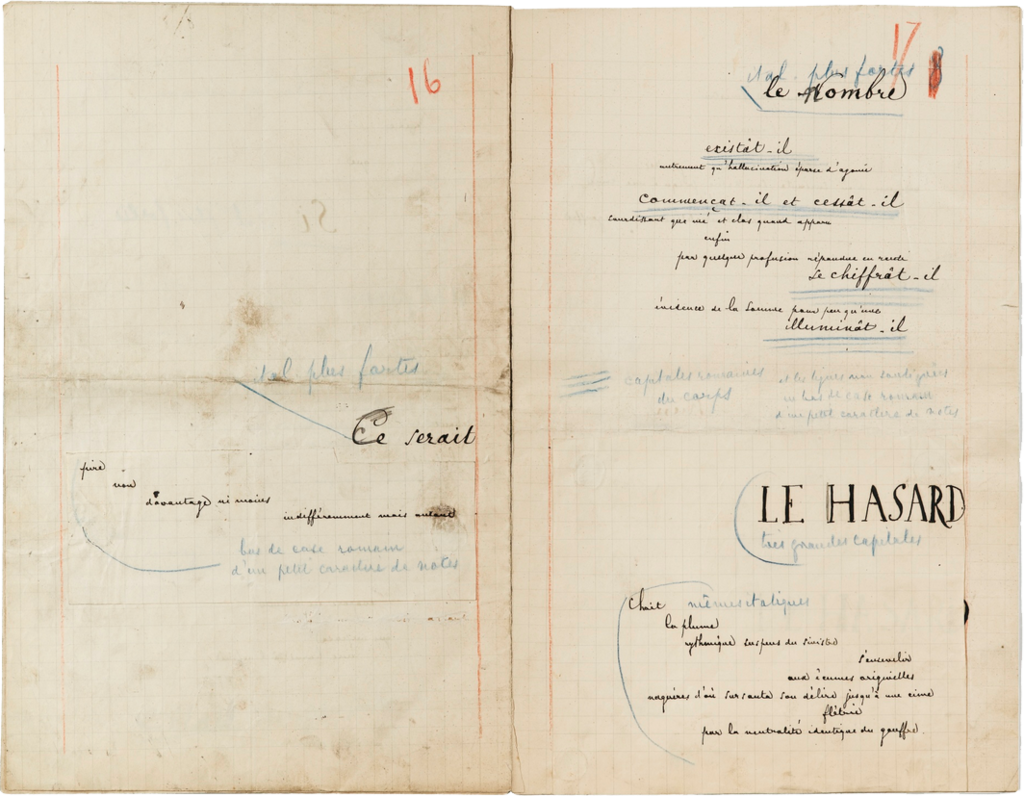 16
ital. plus fortes
Ce serait
pire
non
davantage ni moins
indifféremment mais autant
bas de case romain
d'un petit caractère de notes
17
ital. plus fortes
le nombre
existât-il
autrement qu'hallucination éparse d'agonie
commençat-il et cessât-il
sourdissant que nié et clos quand apparu
enfin
par quelque profusion répandue en rareté
se chiffrât-il
évidence de la somme pour peu qu'une
illuminât-il
capitales romaines
du corps
et les lignes non soulignées
en bas de case romain
d'un petit caractère de notes
LE HASARD
très grandes capitales
Choit
mêmes italiques
la plume
rythmique suspens du sinistre
s'ensevelir
aux écumes originelles
naguères d'où sursauta son délire jusqu'à une cime
flétrie
par la neutralité identique du gouffre.